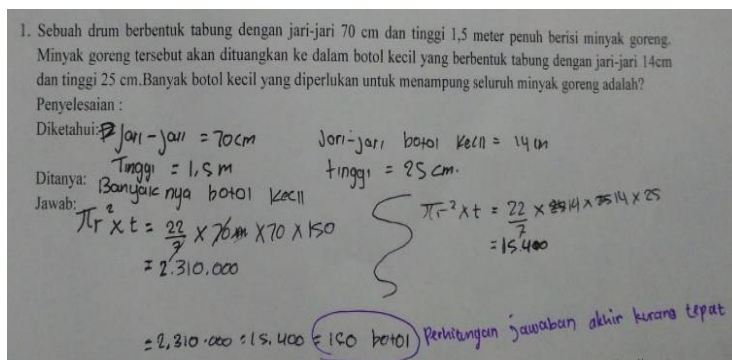 1. Sebuah drum berbentuk tabung dengan jari-jari 70 cm dan tinggi 1,5 meter penuh berisi minyak goreng.
Minyak goreng tersebut akan dituangkan ke dalam botol kecil yang berbentuk tabung dengan jari-jari 14cm
dan tinggi 25 cm.Banyak botol kecil yang diperlukan untuk menampung seluruh minyak goreng adalah?
Penyelesaian :
Diketahui: Jari-jari = 70cm Jari-jari botol kecil = 14 cm
Tinggi = 1,5 m tinggi = 25 cm.
Ditanya: Banyaknya botol kecil
Jawab:
πr² x t = 22/7 x 70 x 70 x 150 πr² x t = 22/7 x 14 x 14 x 25
= 2.310.000 = 15.400
= 2,310.000 : 15.400 = 150 botol Perhitungan jawaban akhir kurang tepat